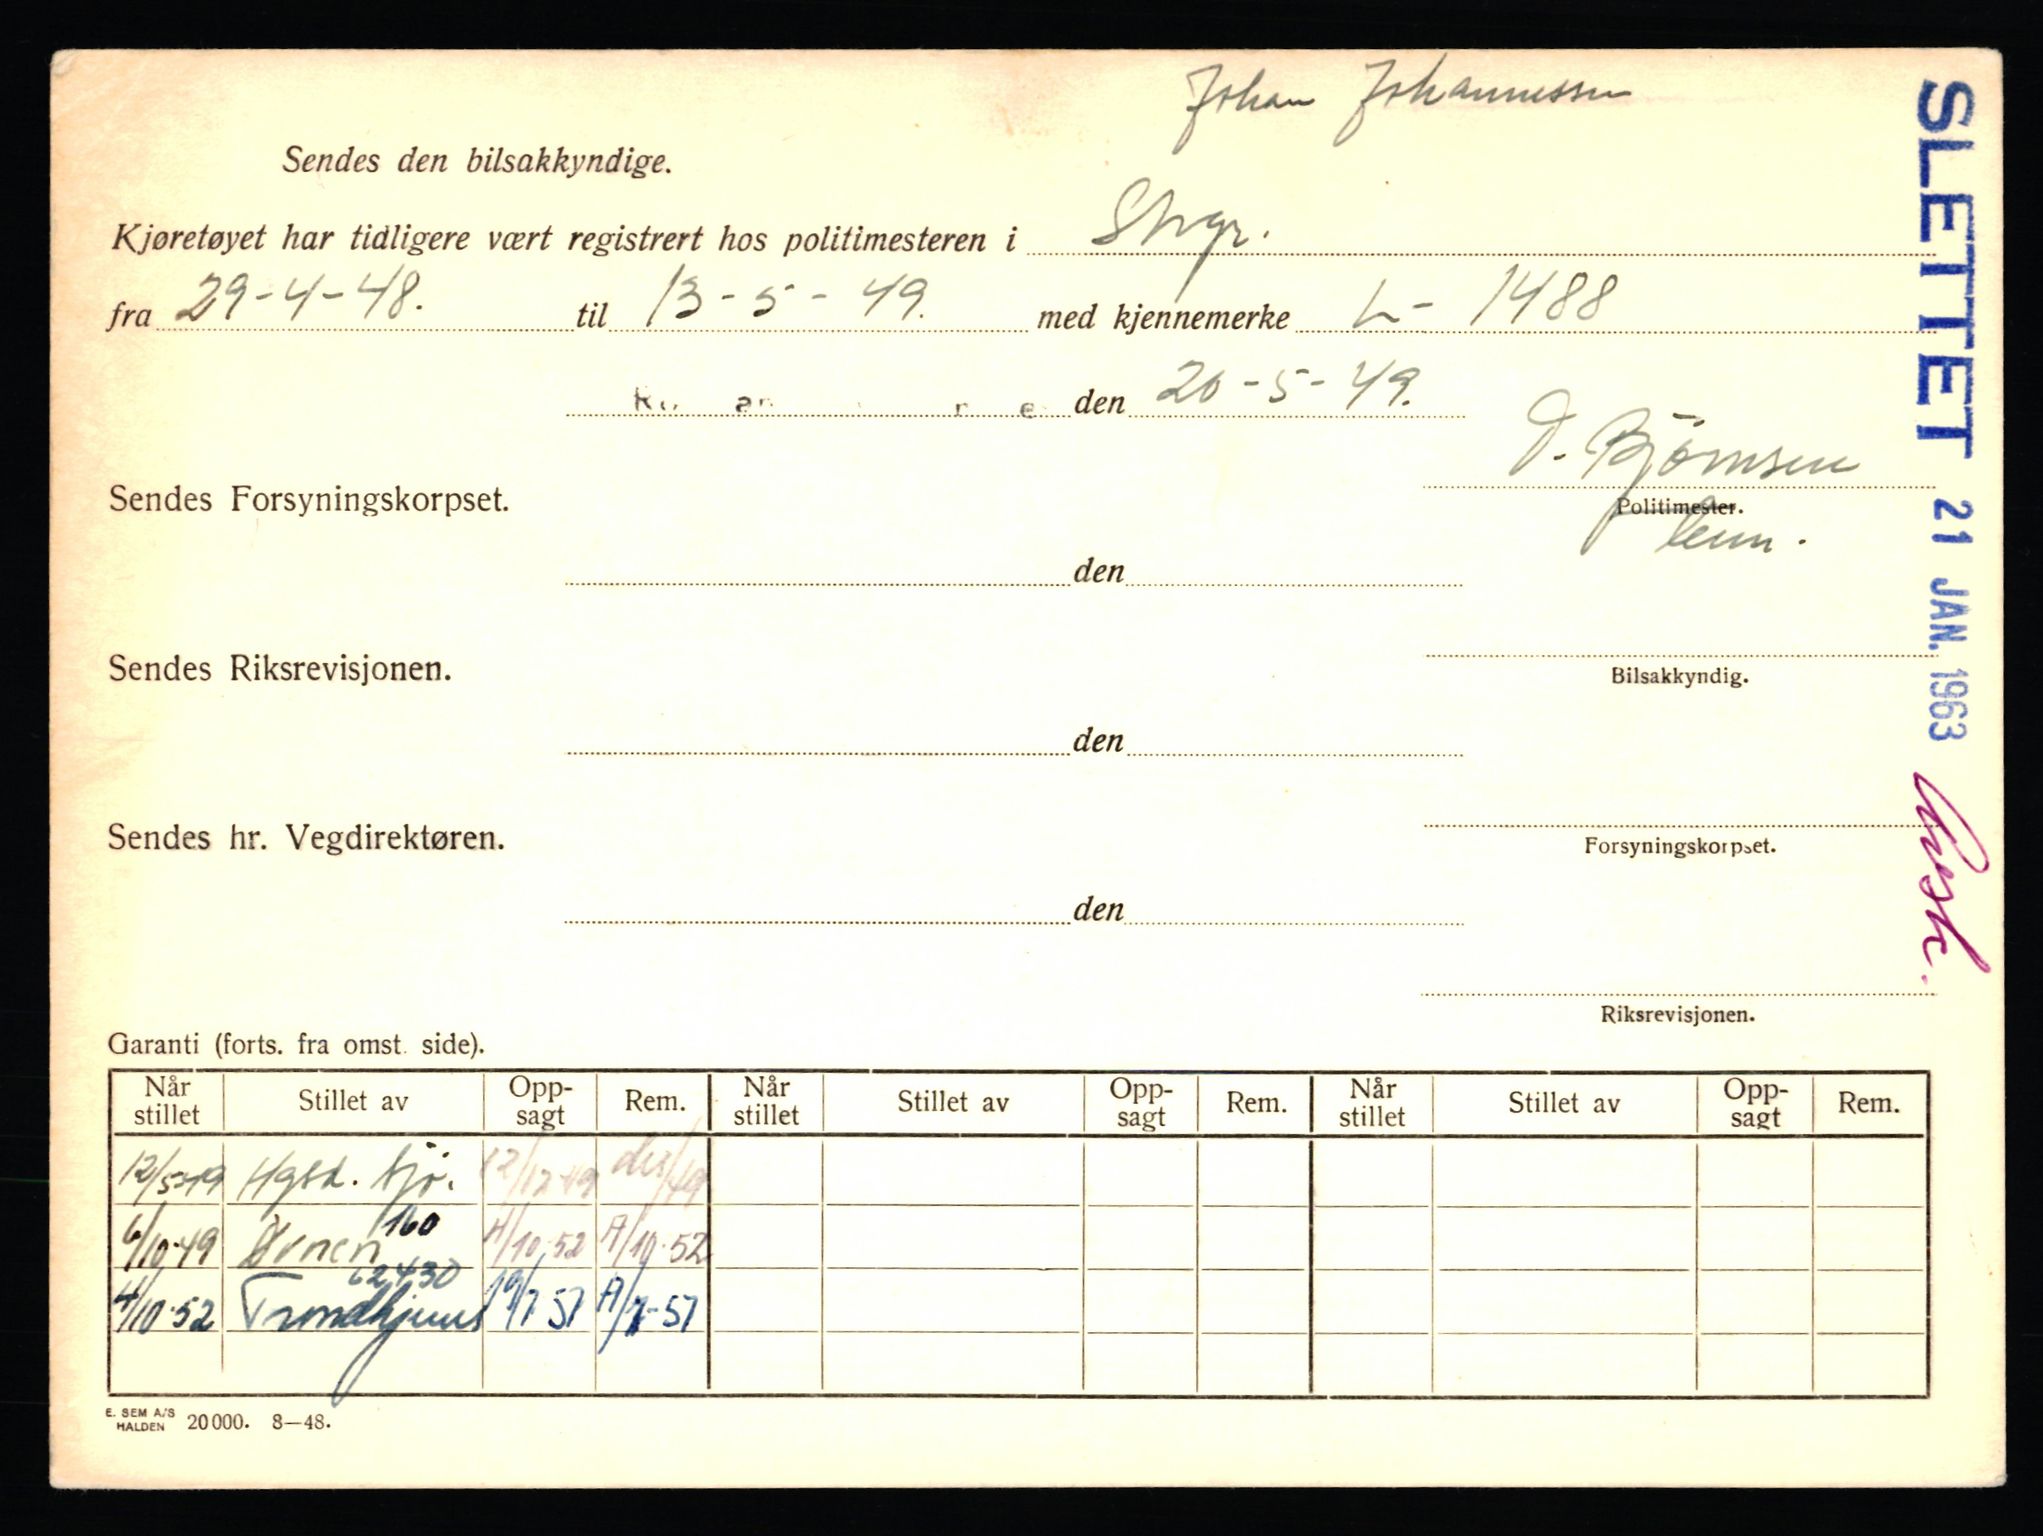 Johan Johannessen
Sendes den bilsakkyndige.
Kjøretøyet har tidligere vært registrert hos politimesteren i
fra 29-4-48. til 13-5-49. med kjennemerke L- 1488
den 20-5-49.
D. Bjørnsen
Sendes Forsyningskorpset.
Politimester.
den
Sendes Riksrevisjonen.
Bilsakkyndig.
den
Sendes hr. Vegdirektøren.
Forsyningskorpset.
den
Riksrevisjonen.
Garanti (forts. fra omst. side).
Når stillet Stillet av Opp-sagt Rem. Når stillet Stillet av Opp-sagt Rem. Når stillet Stillet av Opp-sagt Rem.
12/5-49 Hgsd. Sjø. 12/12-49 des/49
6/10-49 160 4/10-52 A/10-52
4/10-52 Trondhjems 62430 19/7 57 A/7-57
E. SEM A/S HALDEN 20000. 8—48.
SLETTET 21 JAN. 1963